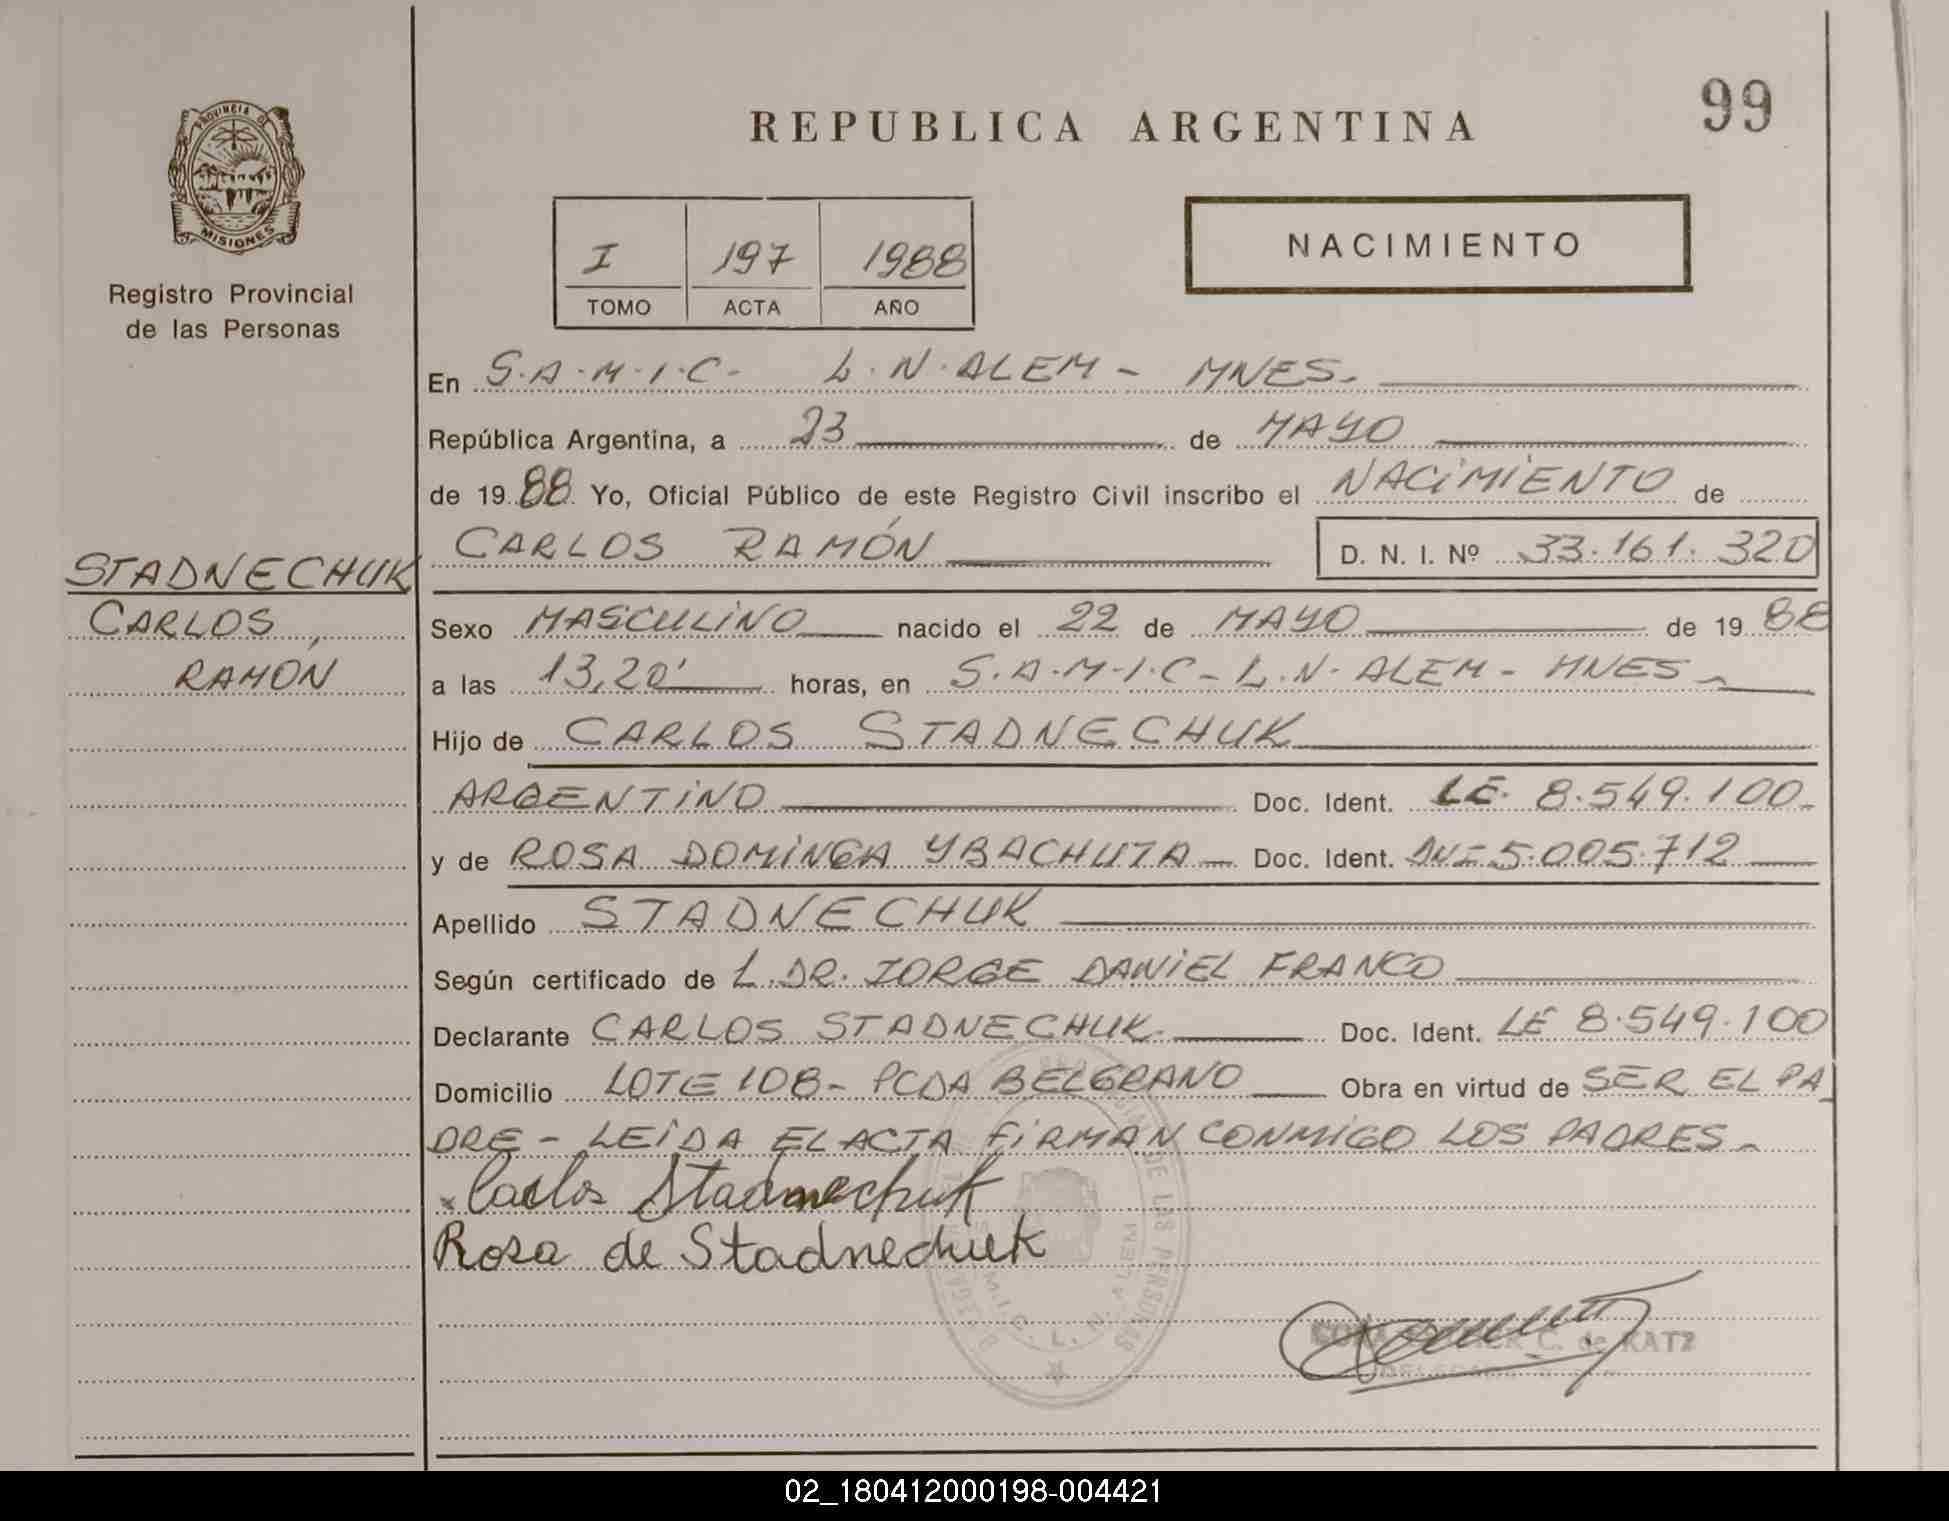 REPUBLICA ARGENTINA
99
PROVINCIA D
MISIONES
Registro Provincial
de las Personas
I 197 1988
TOMO ACTA AÑO
NACIMIENTO
En S.A.M.I.C- L.N.ALEM - MNES.
República Argentina, a 23 de MAYO
de 1988 Yo, Oficial Público de este Registro Civil inscribo el NACIMIENTO de
CARLOS RAMÓN D. N. I. Nº 33.161.320
STADNECHUK
CARLOS
RAMÓN
Sexo MASCULINO nacido el 22 de MAYO de 1988
a las 13,20' horas, en S.A.M.I.C - L.N. ALEM - MNES
Hijo de CARLOS STADNECHUK
ARGENTINO Doc. Ident. LE. 8.549.100
y de ROSA DOMINGA YBACHUTA Doc. Ident. DNI 5.005.712
Apellido STADNECHUK
Según certificado de L.DR. JORGE DANIEL FRANCO
Declarante CARLOS STADNECHUK Doc. Ident. LE 8.549.100
Domicilio LOTE 108 - PCDA BELGRANO Obra en virtud de SER EL PA
DRE - LEIDA EL ACTA FIRMAN CONMIGO LOS PADRES
Carlos Stadnechuk
Rosa de Stadnechuk
DE LAS PERSONAS
S.A.M.I.C. L. N. ALEM
C. de KATZ
02_180412000198-004421